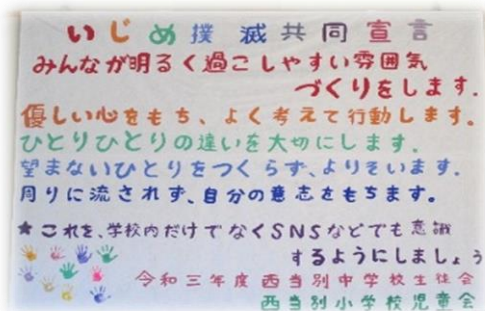 いじめ撲滅共同宣言
みんなが明るく過ごしやすい雰囲気
づくりをします.
優しい心をもち、よく考えて行動します.
ひとりひとりの違いを大切にします.
望まないひとりをつくらず、よりそいます.
周りに流されず、自分の意志をもちます。
★これを、学校内だけでなくSNSなどでも意識
するようにしましょう
令和三年度 西当別中学校生徒会
西当別小学校児童会